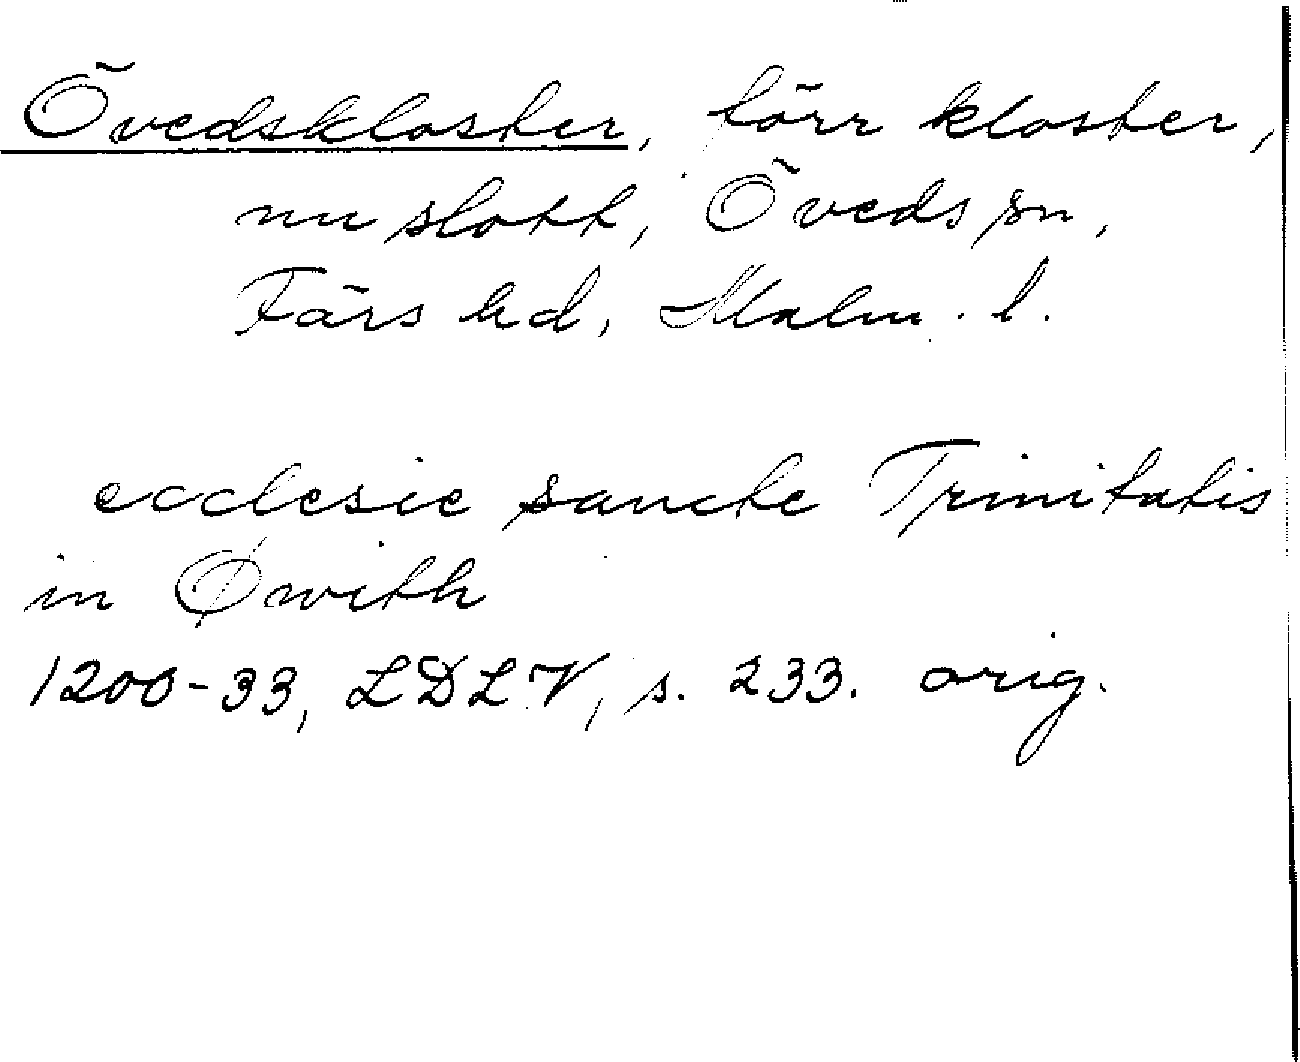 Övedskloster, förr kloster,
nu slott, Öveds sn,
Färs hd, Malm. l.
ecclesie sancte Trinitatis
in Øwith
1200-33, LDLV, s. 233. orig.